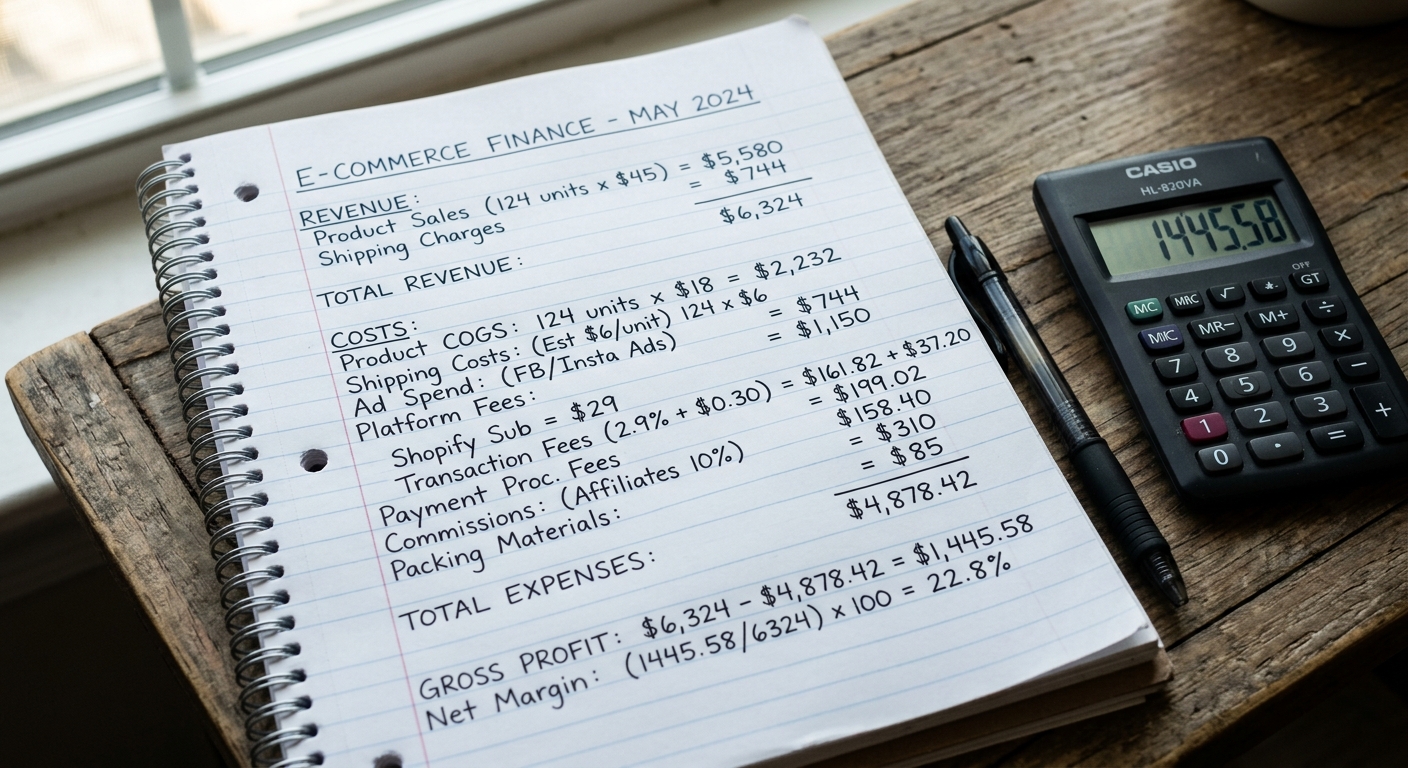 E-COMMERCE FINANCE - MAY 2024
REVENUE:
Product Sales (124 units x $45) = $5,580
Shipping Charges = $744
$6,324
TOTAL REVENUE:
COSTS:
Product COGS: 124 units x $18 = $2,232
Shipping Costs: (Est $6/unit) 124 x $6 = $744
Ad Spend: (FB/Insta Ads) = $1,150
Platform Fees:
Shopify Sub = $29
Transaction Fees (2.9% + $0.30) = $161.82 + $37.20
= $199.02
Payment Proc. Fees $158.40
Commissions: (Affiliates 10%) = $310
Packing Materials: = $85
$4,878.42
TOTAL EXPENSES:
GROSS PROFIT: $6,324 - $4,878.42 = $1,445.58
Net Margin: (1445.58/6324) x 100 = 22.8%
CASIO
HL-820VA
1445.58
OFF
MC MRC √ GT
MR- M+ ÷
7 8 9 ×
4 5 6 −
1 2 3 +
0 · =